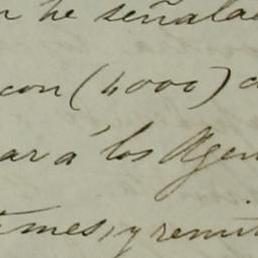 n he señalad
con (4000) d
ar á los Agen
imes, y remit